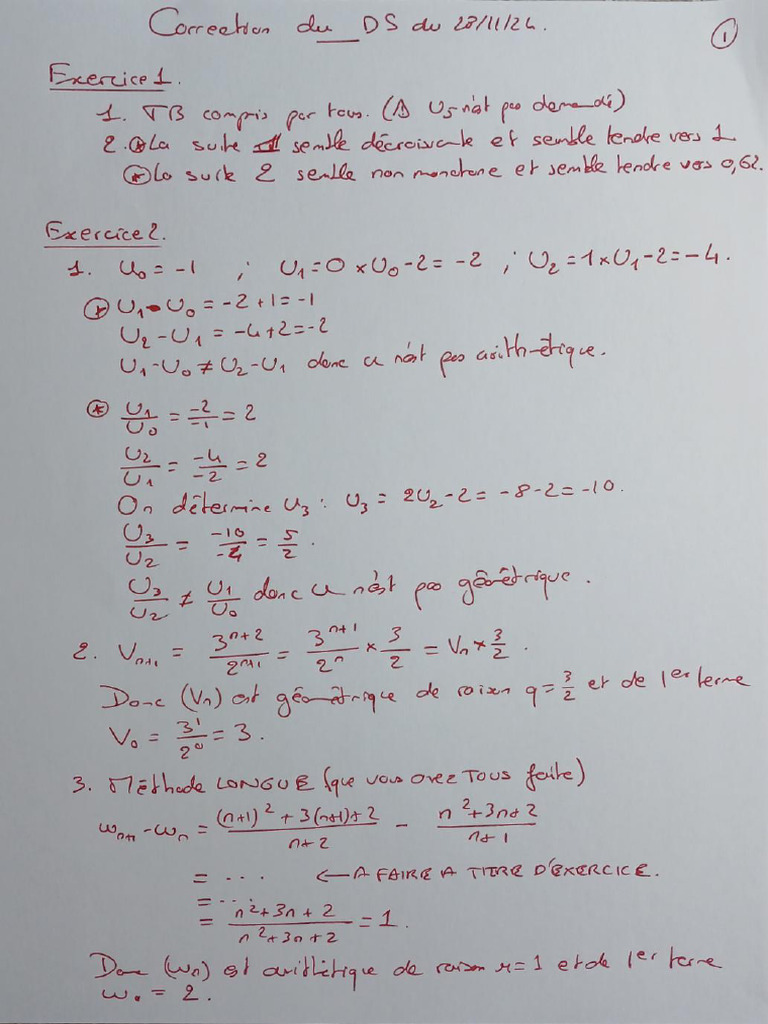 Correction du DS du 28/11/24.
1
Exercice 1.
1. TB compris par tous. (⚠ U5 n'est pas demandé)
2. * La suite 1 semble décroissante et semble tendre vers 1
* La suite 2 semble non monotone et semble tendre vers 0,62.
Exercice 2.
1. U₀ = -1 ; U₁ = 0 × U₀ - 2 = -2 ; U₂ = 1 × U₁ - 2 = -4.
* U₁ - U₀ = -2 + 1 = -1
U₂ - U₁ = -4 + 2 = -2
U₁ - U₀ ≠ U₂ - U₁ donc u n'est pas arithmétique.
* U₁/U₀ = -2/-1 = 2
U₂/U₁ = -4/-2 = 2
On détermine U₃ : U₃ = 2U₂ - 2 = -8 - 2 = -10.
U₃/U₂ = -10/-4 = 5/2.
U₃/U₂ ≠ U₁/U₀ donc u n'est pas géométrique.
2. Vₙ₊₁ = 3ⁿ⁺²/2ⁿ⁺¹ = 3ⁿ⁺¹/2ⁿ × 3/2 = Vₙ × 3/2.
Donc (Vₙ) est géométrique de raison q = 3/2 et de 1er terme
V₀ = 3¹/2⁰ = 3.
3. Méthode LONGUE (que vous avez TOUS faite)
wₙ₊₁ - wₙ = ((n+1)² + 3(n+1) + 2)/(n+2) - (n² + 3n + 2)/(n+1)
= ... ← A FAIRE A TITRE D'EXERCICE.
= ...
= (n² + 3n + 2)/(n² + 3n + 2) = 1.
Donc (wₙ) est arithmétique de raison r = 1 et de 1er terme
w₀ = 2.